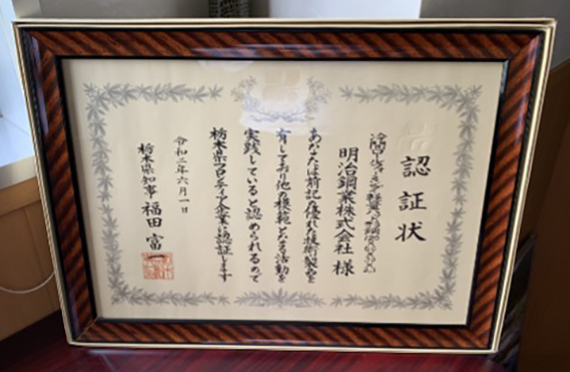 認証状
明治鋼業株式会社 様
あなたは前記の優れた技術製品を
有しており他の模範となる活動を
実践していると認められるので
栃木県フロンティア企業に認証します
令和三年六月一日
栃木県知事 福田富一